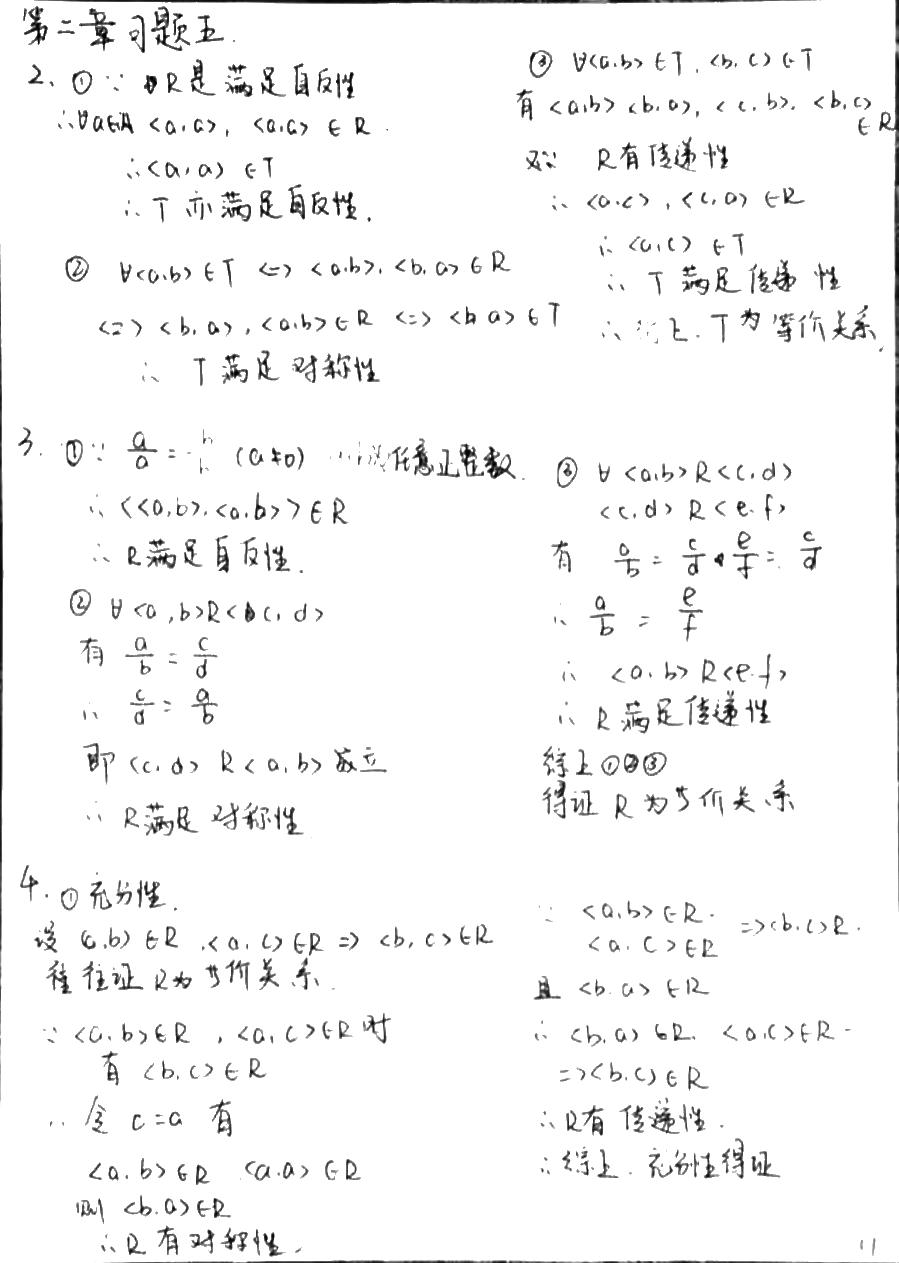 第二章习题五.
2. ① ∵ R是满足自反性
∴∀a∈A <a,a>, <a,a> ∈ R.
∴<a,a> ∈T
∴T 亦满足自反性.
② ∀<a,b>∈T <=> <a,b>, <b,a>∈R
<=> <b,a>, <a,b>∈R <=> <b,a>∈T
∴ T满足对称性
③ ∀<a,b>∈T, <b,c>∈T
有 <a,b> <b,a>, <c,b>, <b,c>
∈R
又∵ R有传递性
∴ <a,c>, <c,a> ∈R
∴ <a,c> ∈T
∴ T满足传递性
∴ 综上. T为等价关系.
3. ①∵ a/a = b/b (a≠0) 任意正整数.
∴ <<a,b>,<a,b>>∈R
∴ R满足自反性.
② ∀<a,b>R<c,d>
有 a/b = c/d
∴ c/d = a/b
即 <c,d> R <a,b> 成立
∴ R满足 对称性
③ ∀ <a,b>R<c,d>
<c,d> R <e,f>
有 a/b = c/d , e/f = c/d
∴ a/b = e/f
∴ <a,b> R<e,f>
∴ R满足传递性
综上①②③
得证 R为等价关系
4. ①充分性.
设 <a,b>∈R, <a,c>∈R => <b,c>∈R
往证 R为等价关系.
∵ <a,b>∈R , <a,c>∈R 时
有 <b,c>∈R
∴ 令 c=a 有
<a,b>∈R <a,a>∈R
则 <b,a>∈R
∴R 有对称性.
∵ <a,b>∈R.
<a,c>∈R => <b,c>R.
且 <b,a>∈R
∴ <b,a>∈R. <a,c>∈R
=> <b,c>∈R
∴R有 传递性.
∴综上. 充分性得证